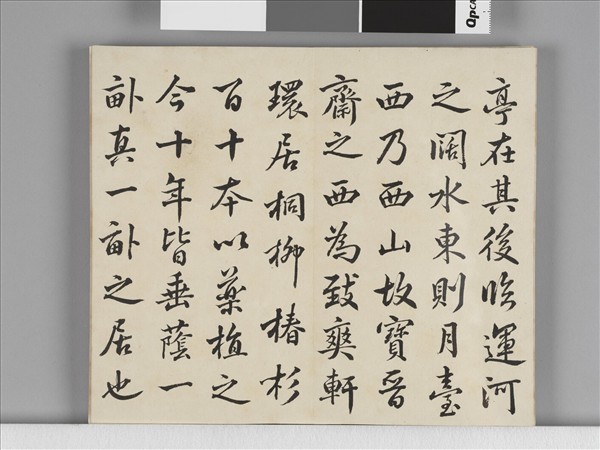 亭在其後臨運河
之闊水東則月臺
西乃西山故寶晉
齋之西為致爽軒
環居桐柳椿杉
百十本以藥植之
今十年皆垂蔭一
畝真一畝之居也
QPCA